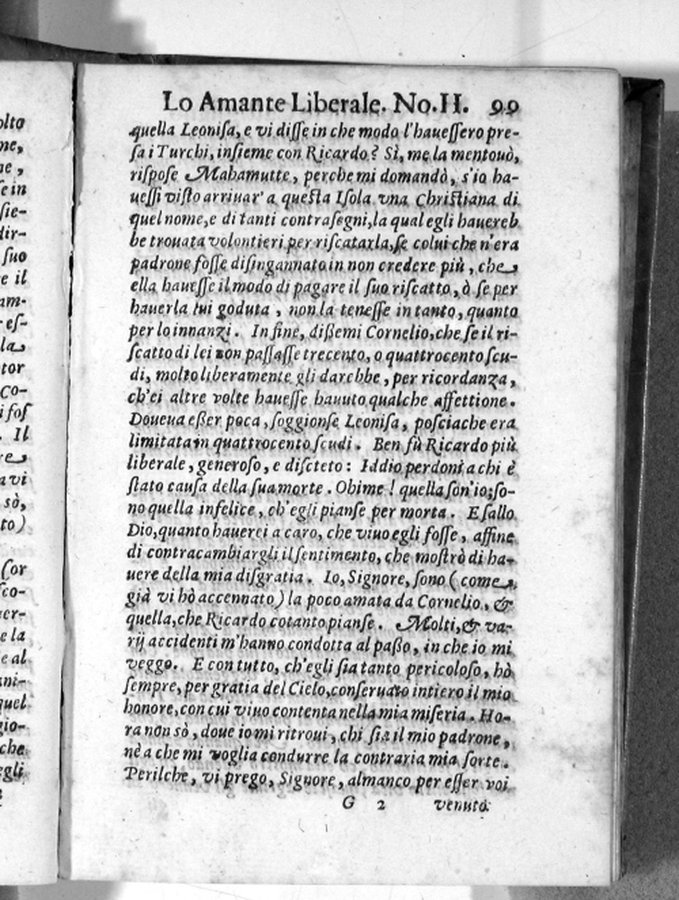 Lo Amante Liberale. No. II. 99
quella Leonisa, e vi disse in che modo l'hauessero pre-
sa i Turchi, insieme con Ricardo? Sì, me la mentouò,
rispose Mahamutte, perche mi domandò, s'io ha-
uessi visto arriuar' a questa Isola vna Christiana di
quel nome, e di tanti contrasegni, la qual egli hauereb
be trouata volontieri per riscatarla, se colui che n'era
padrone fosse disingannato in non credere più, che
ella hauesse il modo di pagare il suo riscatto, ò se per
hauerla lui goduta, non la tenesse in tanto, quanto
per lo innanzi. In fine, dißemi Cornelio, che se il ri-
scatto di lei non passasse trecento, o quattrocento scu-
di, molto liberamente gli darebbe, per ricordanza,
ch'ei altre volte hauesse hauuto qualche affettione.
Doueua eßer poca, soggionse Leonisa, posciache era
limitata in quattrocento scudi. Ben fù Ricardo più
liberale, generoso, e discteto: Iddio perdoni a chi è
stato causa della sua morte. Ohime! quella son'io; so-
no quella infelice, ch'egli pianse per morta. E sallo
Dio, quanto hauerei a caro, che viuo egli fosse, affine
di contracambiargli il sentimento, che mostrò di ha-
uere della mia disgratia. Io, Signore, sono (come
già vi hò accennato) la poco amata da Cornelio, &
quella, che Ricardo cotanto pianse. Molti, & va-
rij accidenti m'hanno condotta al paßo, in che io mi
veggo. E con tutto, ch'egli sia tanto pericoloso, hò
sempre, per gratia del Cielo, conseruato intiero il mio
honore, con cui viuo contenta nella mia miseria. Ho-
ra non sò, doue io mi ritroui, chi sia il mio padrone,
nè a che mi voglia condurre la contraria mia sorte.
Perilche, vi prego, Signore, almanco per esser voi
G 2 venuto